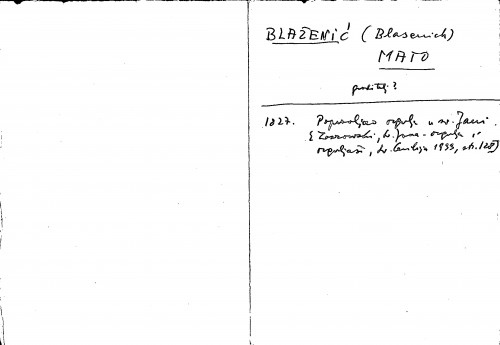 BLAŽENIĆ (Blasenich)
MATO
graditelj?
1827. Popravljao orgulje u sv. Jani.
orgulje i
orguljaši, sv. Cecilija 1933, str. 128)